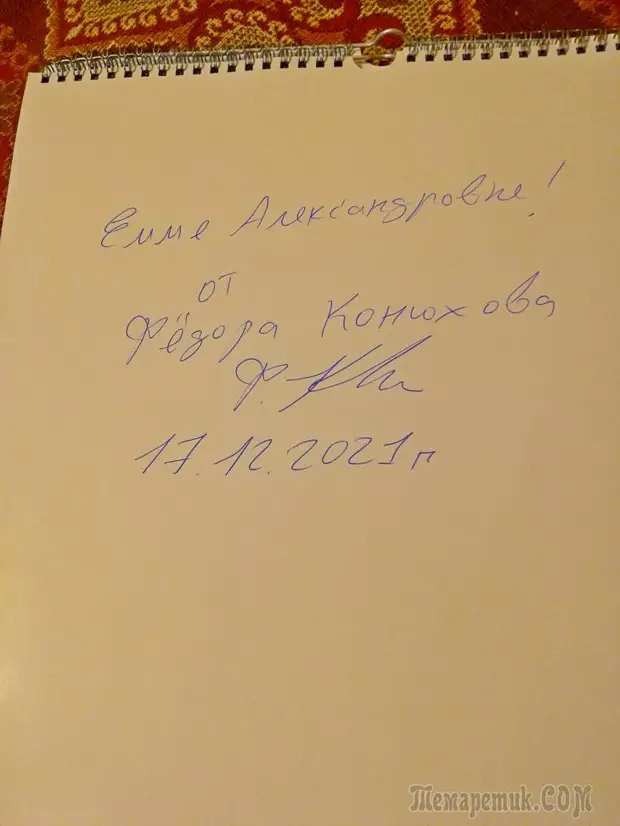 Емме Александровне!
от
Фёдора Конюхова
Ф.
17.12.2021 г
Темаретик.COM